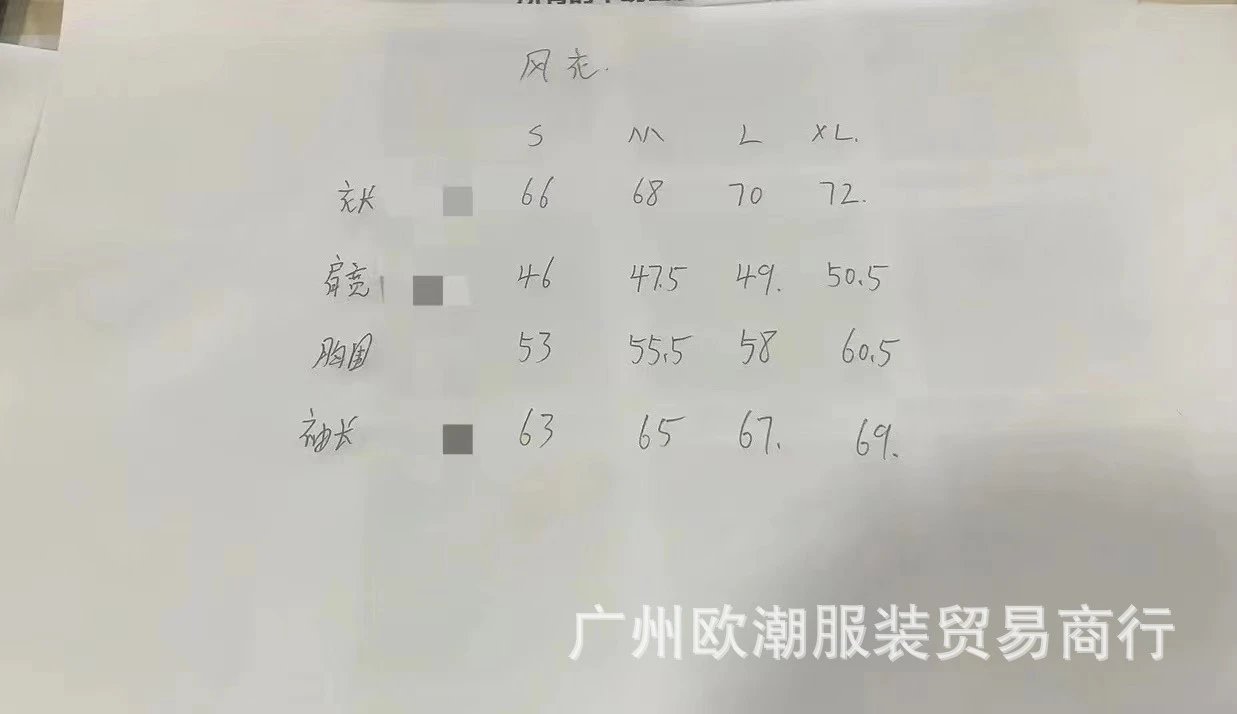 风衣.
S M L XL.
衣长 66 68 70 72.
肩宽 46 47.5 49. 50.5
胸围 53 55.5 58 60.5
袖长 63 65 67. 69.
广州欧潮服装贸易商行